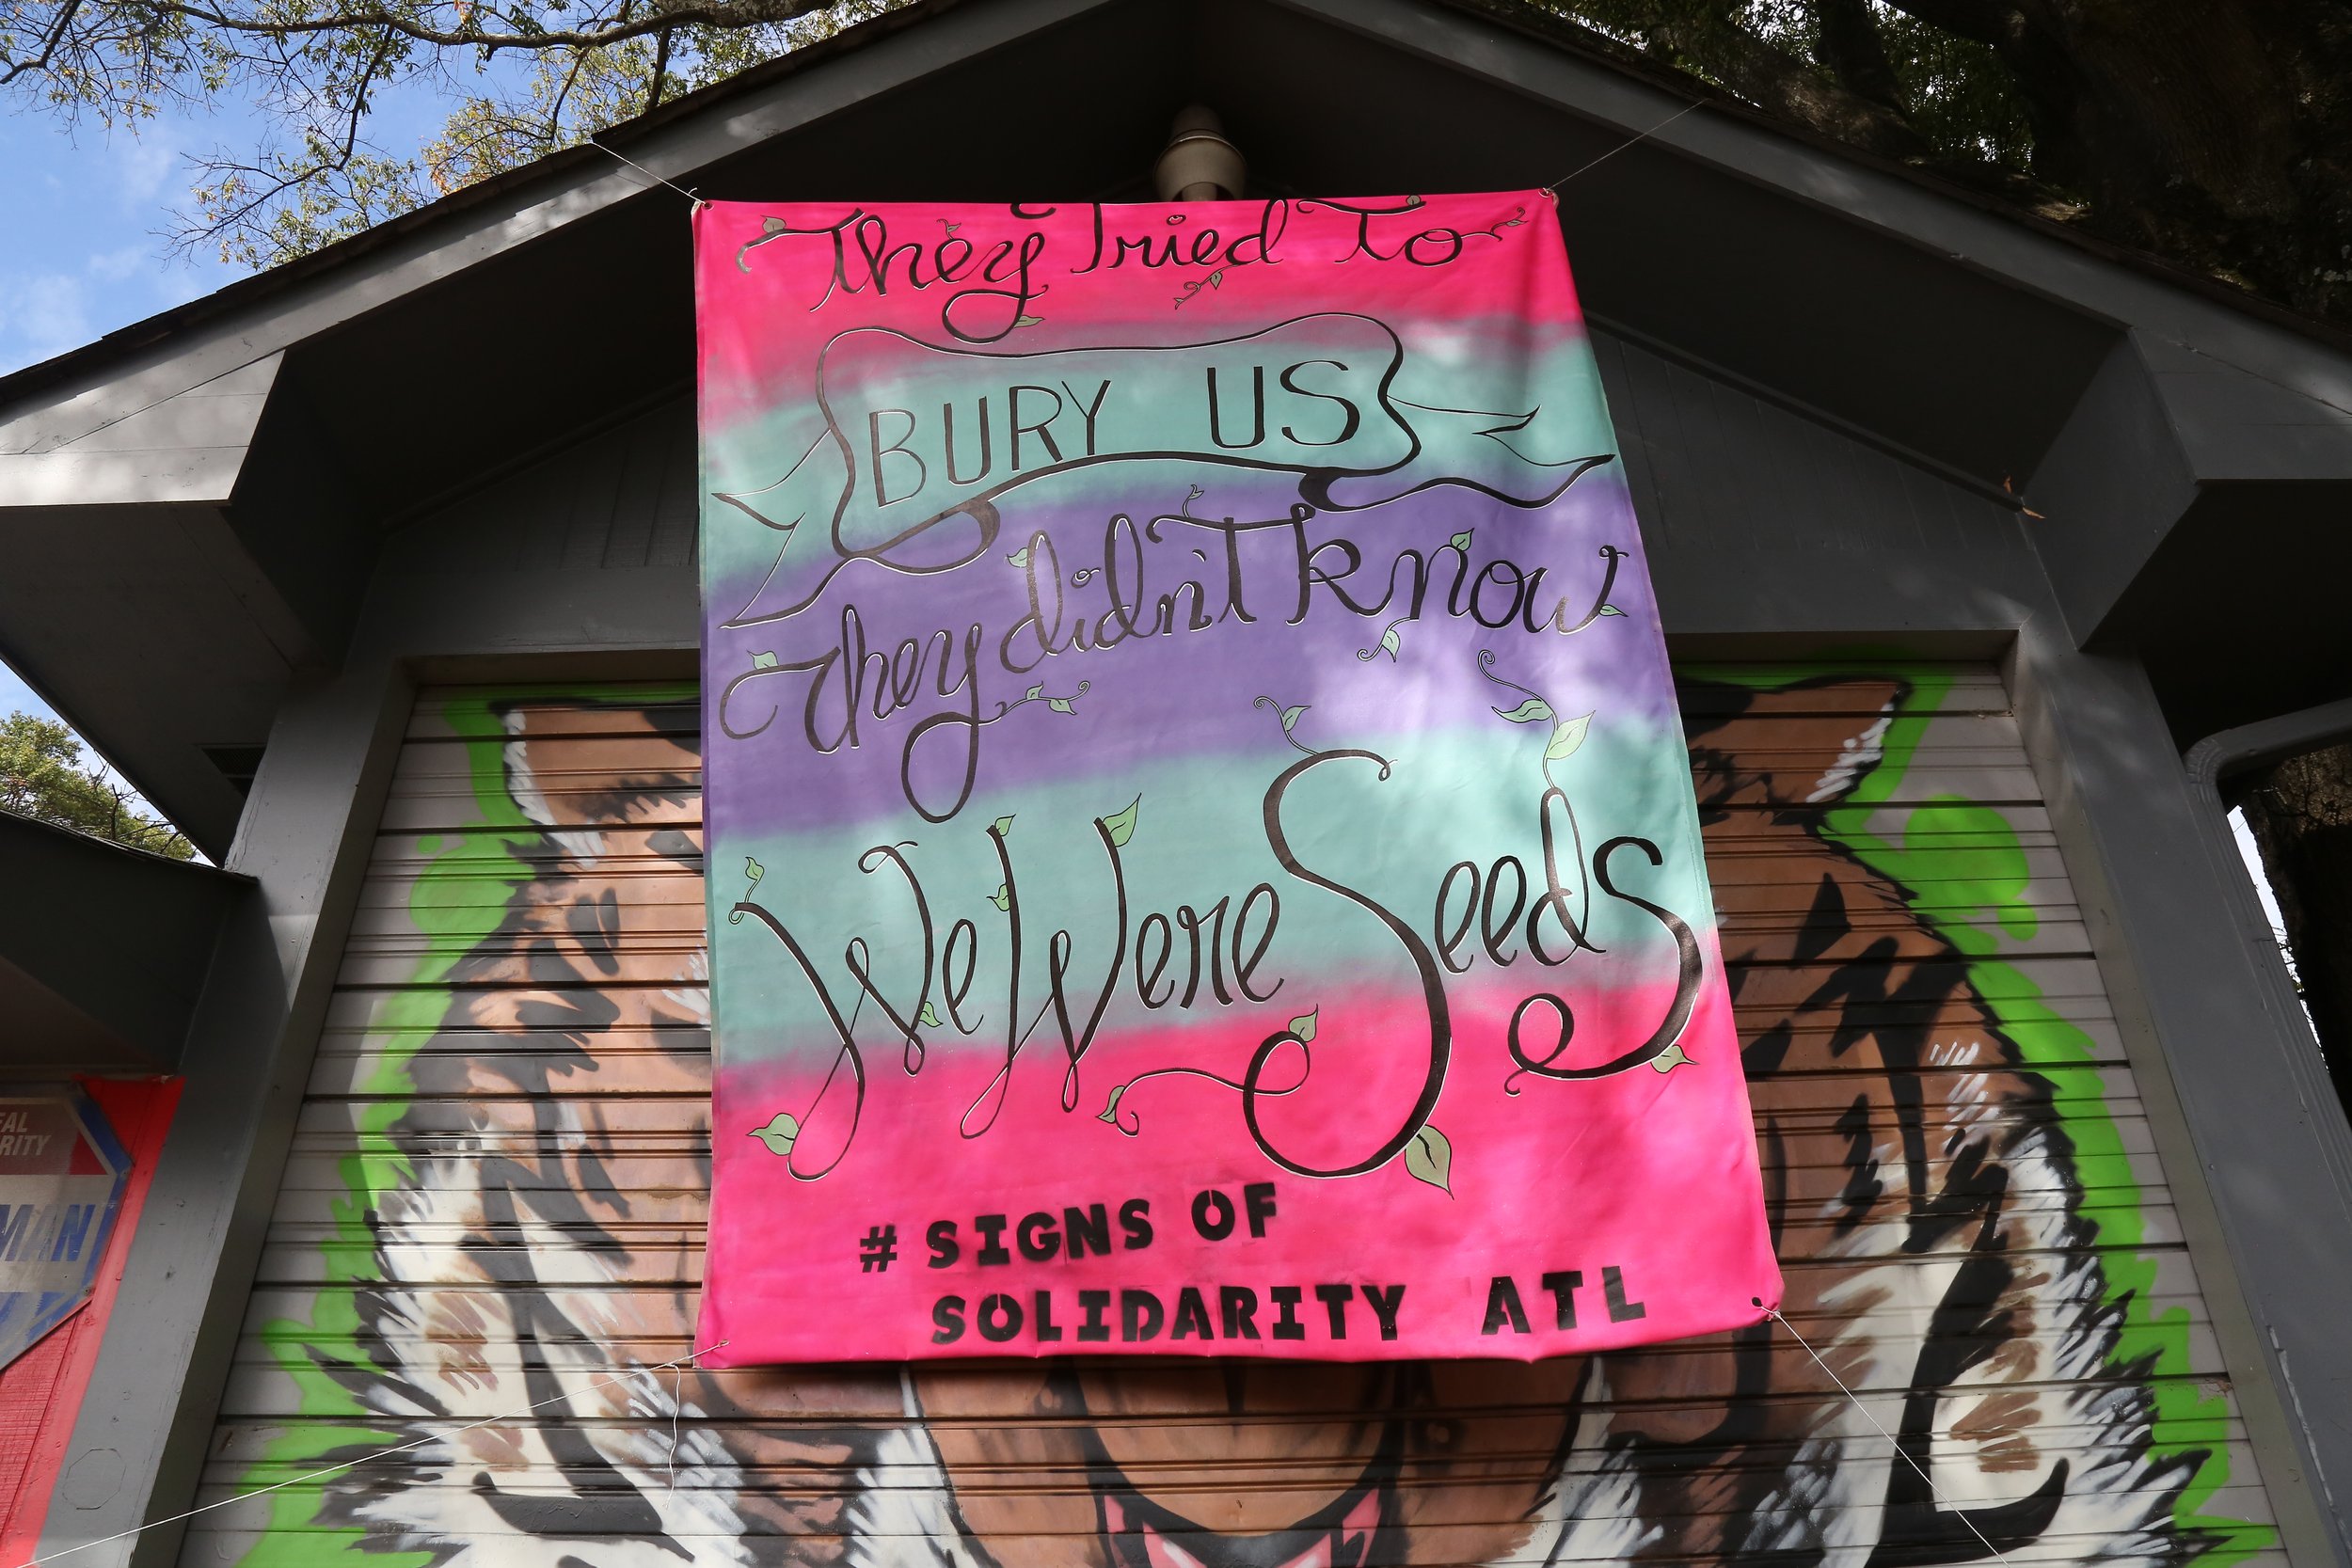 They Tried To
BURY US
They didn't know
We Were Seeds
# SIGNS OF
SOLIDARITY ATL